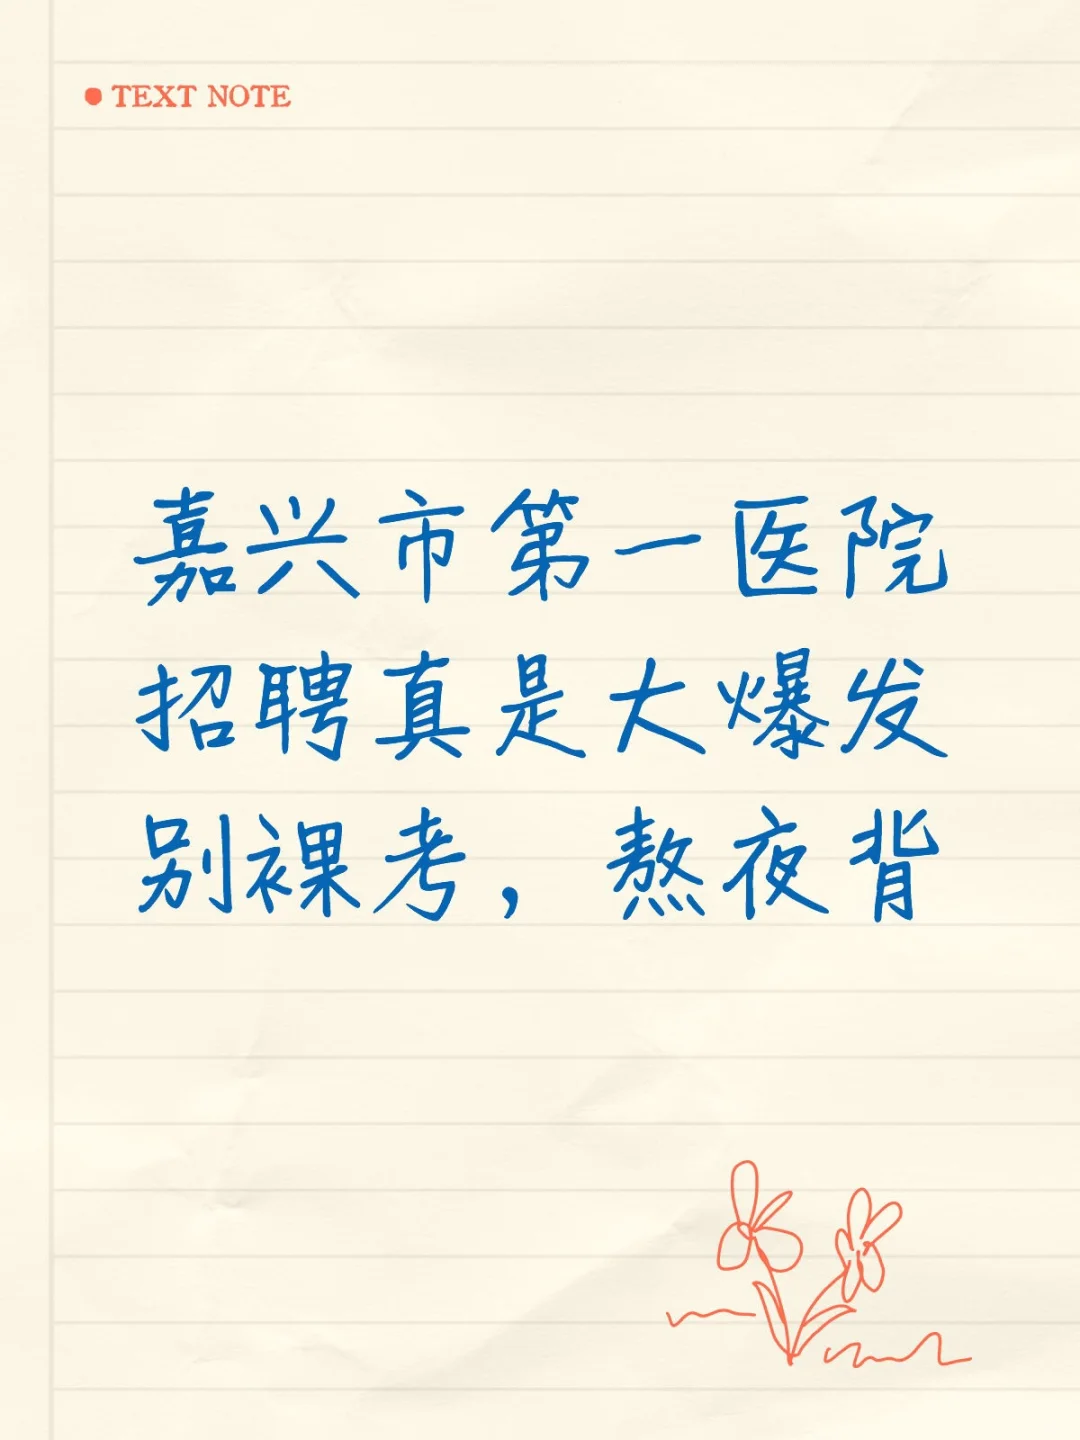 TEXT NOTE
嘉兴市第一医院
招聘真是大爆发
别裸考，熬夜背